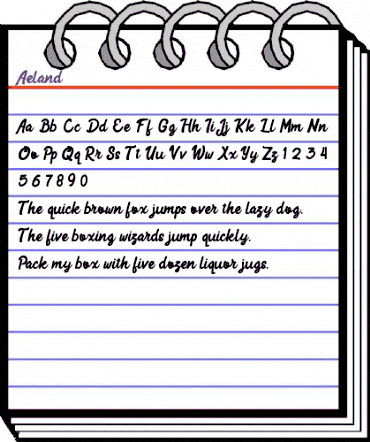 Aeland
Aa Bb Cc Dd Ee Ff Gg Hh Ii Jj Kk Ll Mm Nn
Oo Pp Qq Rr Ss Tt Uu Vv Ww Xx Yy Zz 1 2 3 4
5 6 7 8 9 0
The quick brown fox jumps over the lazy dog.
The five boxing wizards jump quickly.
Pack my box with five dozen liquor jugs.